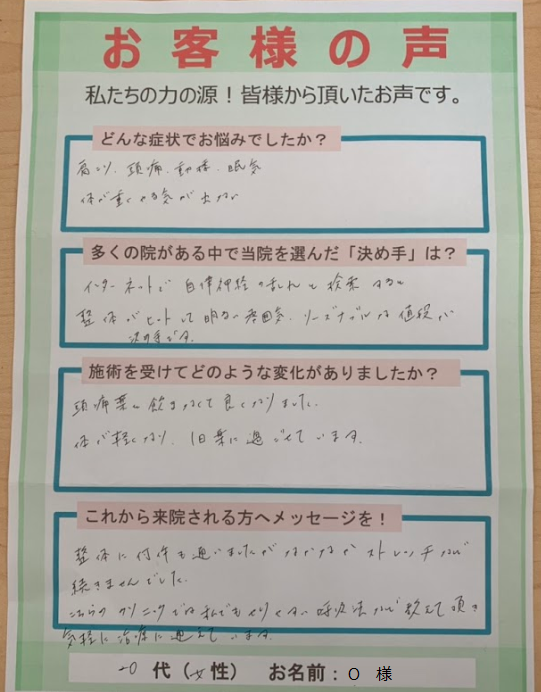 お客様の声
私たちの力の源！皆様から頂いたお声です。
どんな症状でお悩みでしたか？
肩こり、頭痛、動悸、眠気
体が重くやる気が出ない
多くの院がある中で当院を選んだ「決め手」は？
インターネットで自律神経の乱れと検索すると
整体がヒットして明るい雰囲気、リーズナブルな値段が
決め手です。
施術を受けてどのような変化がありましたか？
頭痛薬を飲まなくて良くなりました。
体が軽くなり、1日楽に過ごせています。
これから来院される方へメッセージを！
整体に何件も通いましたがなかなかストレッチなど
続きませんでした。
こちらのクリニックでは私でもやりやすい呼吸法など教えて頂き
気軽に治療に通えています。
代（女性） お名前：O 様